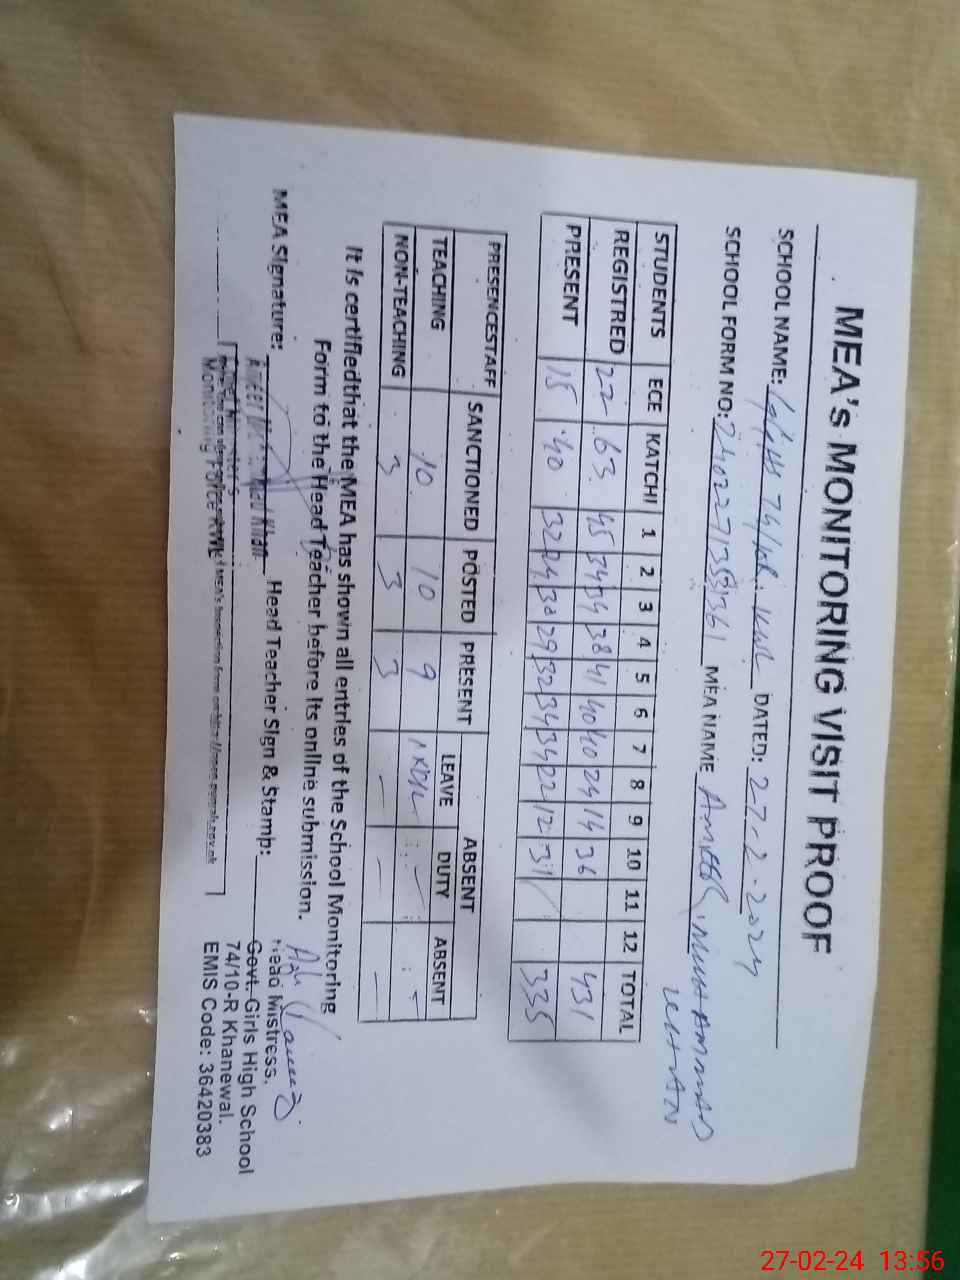 MEA's MONITORING VISIT PROOF
SCHOOL NAME: 74/10R. KWL DATED: 27-2-2024
SCHOOL FORM NO: MEA NAME AMEER MUHAMMAD
KHAN
STUDENTS ECE KATCHI 1 2 3 4 5 6 7 8 9 10 11 12 TOTAL
REGISTRED 22 63 45 34 34 38 41 40 40 24 14 36 431
PRESENT 15 40 32 24 30 29 32 34 34 22 12 31 335
PRESENCESTAFF SANCTIONED POSTED PRESENT ABSENT
LEAVE DUTY ABSENT
TEACHING 10 10 9 1
NON-TEACHING 3 3 3 — — —
It is certifiedthat the MEA has shown all entries of the School Monitoring
Form to the Head Teacher before its online submission.
MEA Signature: Head Teacher Sign & Stamp:
Ameer Muhammad Khan
Monitoring Force KWL
Head Mistress,
Govt. Girls High School
74/10-R Khanewal.
EMIS Code: 36420383
27-02-24 13:56